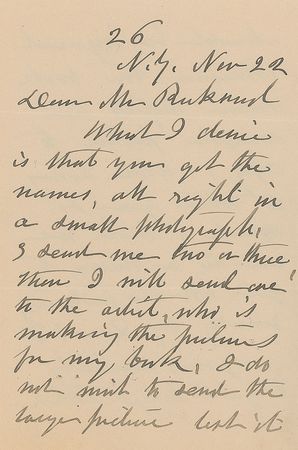 26
N.Y. Nov 22
Dear Mr
What I desire
is that you get the
names, all right in
a small photograph,
& send me two or three
then I will send one
to the artist, who is
making the pictures
for my book, I do
not wish to send the
large picture lest it